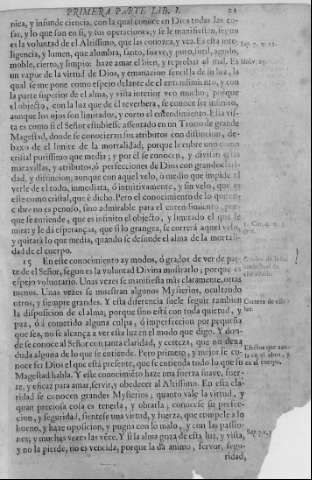 PRIMERA PARTE LIB. I. 21
nica, y infunde ciencia, con la qual conoce en Dios todas las co-
sas, y lo que son en sí, y sus operaciones, y se le manifiestan, segun
es la voluntad de el Altissimo, que las conozca, y vea. Es esta inte-
ligencia, y lumen, que alumbra, santo, suave, y puro, sutil, agudo,
moble, cierto, y limpio: haze amar el bien, y reprobar el mal. Es
un vapor de la virtud de Dios, y emanacion sencilla de su luz, la
qual se me pone como espejo delante de el entendimiento, y con
la parte superior de el alma, y vista interior veo mucho; porque
el objecto, con la luz que de él reverbera, se conoce ser infinito,
aunque los ojos son limitados, y corto el entendimiento. Esta vis-
ta es como si el Señor estubiesse assentado en un Trono de grande
Magestad, donde se conocieran sus atributos con distincion, de-
baxo de el limite de la mortalidad, porque le cubre uno como
cristal purissimo que media; y por él se conocen, y divisan estas
maravillas, y atributos, ó perfecciones de Dios con grande clari-
dad, y distincion; aunque con aquel velo, ó medio que impide el
verle de el todo, inmediata, ó intuitivamente, y sin velo, que es
este como cristal, que é dicho. Pero el conocimiento de lo que en-
cubre no es penoso, sino admirable para el entendimiento; por-
que se entiende, que es infinito el objecto, y limitado el que le
mira; y le dá esperanças, que si lo grangea, se correrá aquel velo,
y quitará lo que media, quando se desnude el alma de la mortali-
dad de el cuerpo.
15 En este conocimiento ay modos, ó grados de ver de par-
te de el Señor, segun es la voluntad Divina mostrarlo; porque es
espejo voluntario. Unas vezes se manifiesta más claramente, otras
menos. Unas vezes se muestran algunos Mysterios, ocultando
otros, y siempre grandes. Y esta diferencia suele seguir tambien
la disposicion de el alma; porque sino está con toda quietud, y
paz, ó á cometido alguna culpa, ó imperfeccion por pequeña
que sea, no se alcança a ver esta luz en el modo que digo. Y don-
de se conoce al Señor con tanta claridad, y certeza, que no dexa
duda alguna de lo que se entiende. Pero primero, y mejor se co-
noce ser Dios el que está presente, que se entienda todo lo que su
Magestad habla. Y este conocimiento haze una fuerça suave, fuer-
te, y eficaz para amar, servir, y obedecer al Altissimo. En esta cla-
ridad se conocen grandes Mysterios; quanto vale la virtud, y
quan preciosa cosa es tenerla, y obrarla; conocese su perfec-
cion, y seguridad, sientese una virtud, y fuerça, que compele a lo
bueno, y haze oposicion, y pugna con lo malo, y con las passio-
nes, y muchas vezes las vence. Y si la alma goza de esta luz, y vista,
y no la pierde, no es vencida, porque la da animo, fervor, segu-
ridad,